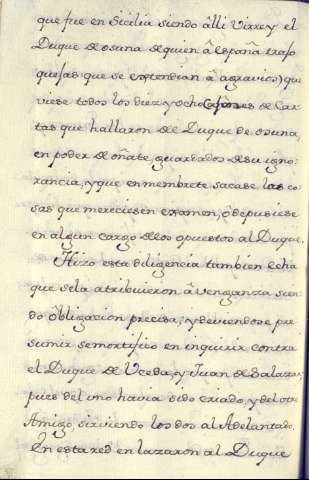 que fue en Sicilia siendo alli Virrey el
Duque de osuna de quien â españa trajo
quejas que se extendian â agravios) que
viese todos los diez y ocho Cajones de Car-
tas que hallaron del Duque de osuna,
en poder de oñate, guardados de su igno-
rancia, y que en membrete sacase las co-
sas que mereciesen examen, ô depusiese
en algun cargo de los opuestos al Duque.
Hizo esta diligencia tambien echa
que se la atribuieron â venganza sien-
do obligacion precisa, y deviendose pre
sumir se mortifico en inquirir contra
el Duque de Uceda, y Juan de Salazar,
pues del uno havia sido criado, y del otro
Amigo, sirviendo los dos al Adelantado.
En esta red enlazaron al Duque